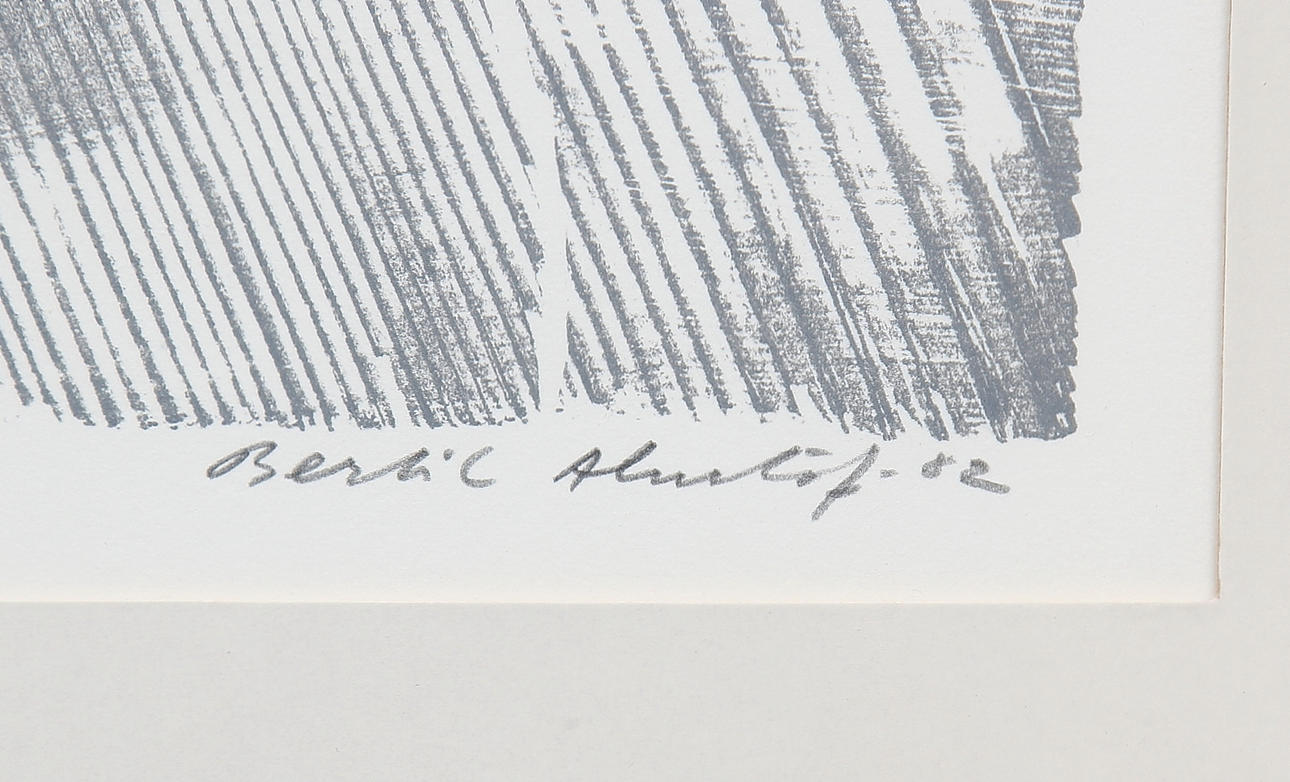 Bertil Almlöf-82